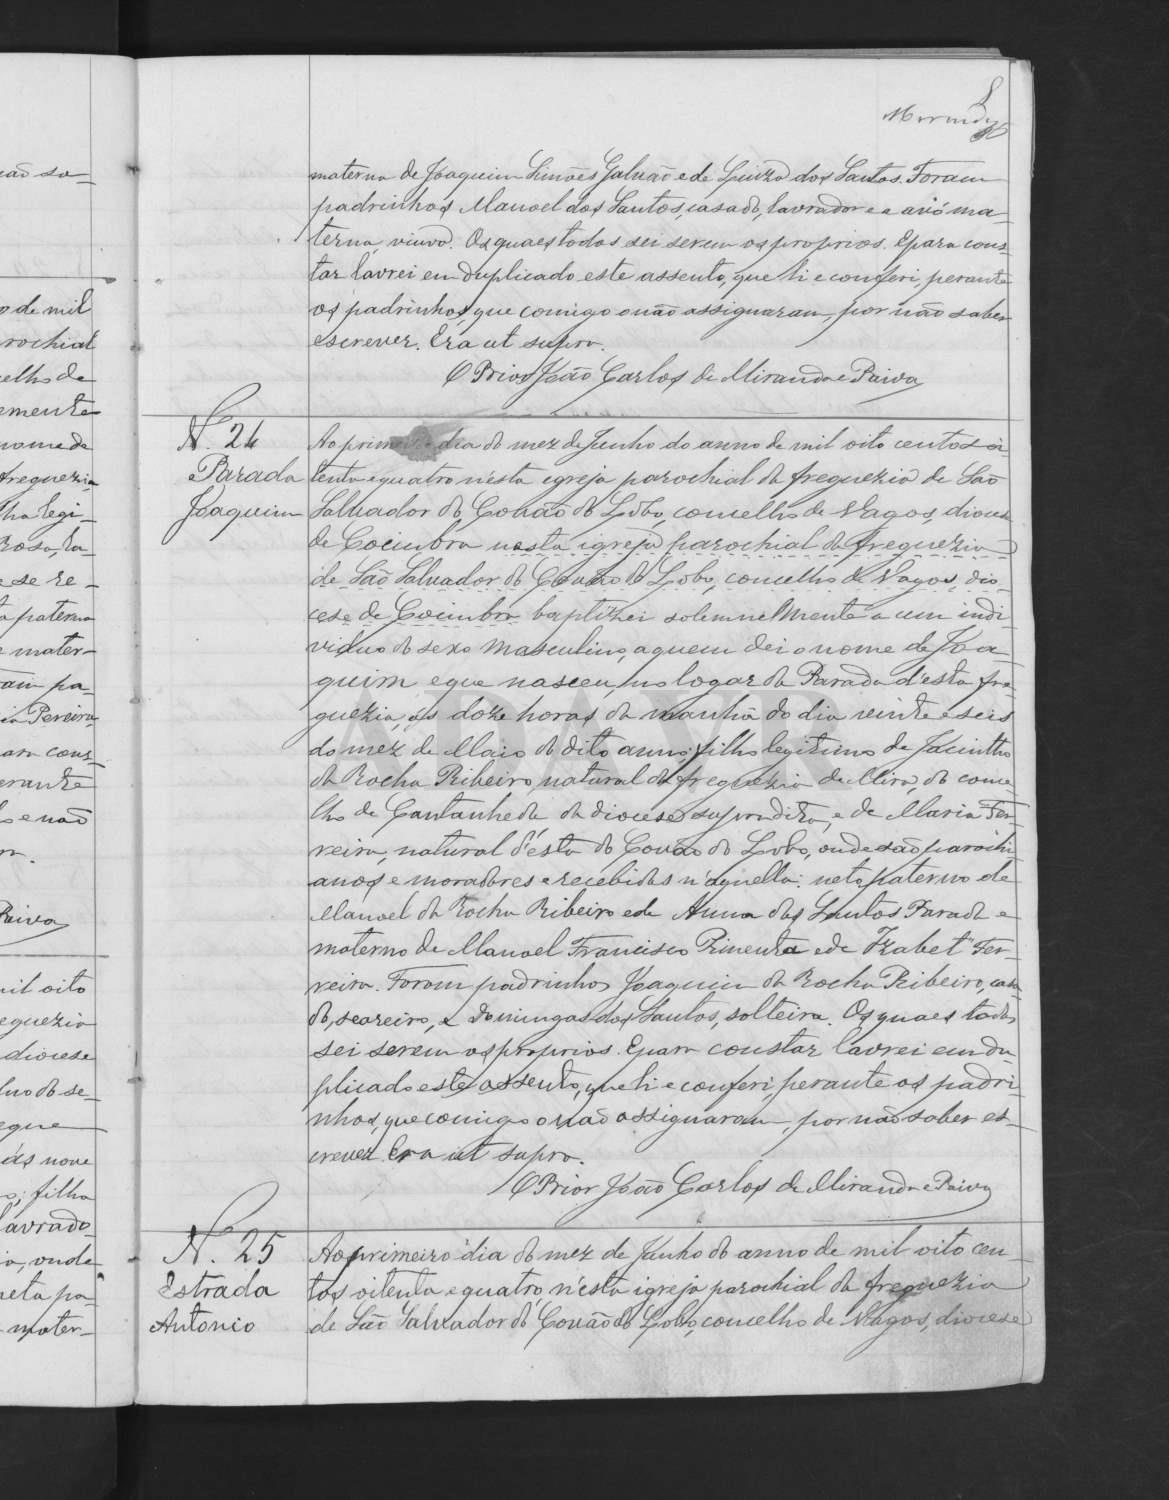 8
Miranda
materna de Joaquim Simões Galvão e de Luiza dos Santos. Foram
padrinhos Manoel dos Santos, casado, lavrador e a avó ma-
terna, viuva. Os quaes todos sei serem os proprios. E para cons-
tar lavrei em duplicado este assento, que li e conferi, perante
os padrinhos, que comigo o não assignaram, por não saber
escrever. Era ut supra.
O Prior João Carlos de Miranda e Paiva
N. 24
Parada
Joaquim
Ao primeiro dia do mez de Junho do anno de mil oito centos oi-
tenta e quatro n'esta igreja parochial da freguezia de São
Salvador do Covão do Lobo, concelho de Vagos, diocese
de Coimbra nesta igreja parochial da freguezia
de São Salvador do Covão do Lobo, concelho de Vagos, dio-
cese de Coimbra baptizei solemnemente a um indi-
viduo do sexo masculino, a quem dei o nome de Joa-
quim e que nasceu, no logar da Parada d'esta fre-
guezia, ás doze horas da manhã do dia vinte e seis
do mez de Maio do dito anno; filho legitimo de Jacintho
da Rocha Ribeiro, natural da freguezia de Mira, do conce-
lho de Cantanhede da diocese supradita, e de Maria Fer-
reira, natural d'ésta do Covão do Lobo, onde são parochi-
anos e moradores e recebidos n'aquella: neto paterno de
Manoel da Rocha Ribeiro e de Anna dos Santos Parada e
materno de Manoel Francisco Pimenta e de Izabel Fer-
reira. Foram padrinhos Joaquim da Rocha Ribeiro, casa-
do, seareiro, e Domingas dos Santos, solteira. Os quaes todos
sei serem os proprios. E para constar lavrei em du-
plicado este assento, que li e conferi, perante os padri-
nhos, que comigo o não assignaram, por não saber es-
crever. Era ut supra.
O Prior João Carlos de Miranda e Paiva
N. 25
Estrada
Antonio
Ao primeiro dia do mez de Junho do anno de mil oito cen-
tos oitenta e quatro, n'esta igreja parochial da freguezia
de São Salvador do Covão do Lobo, concelho de Vagos, diocese